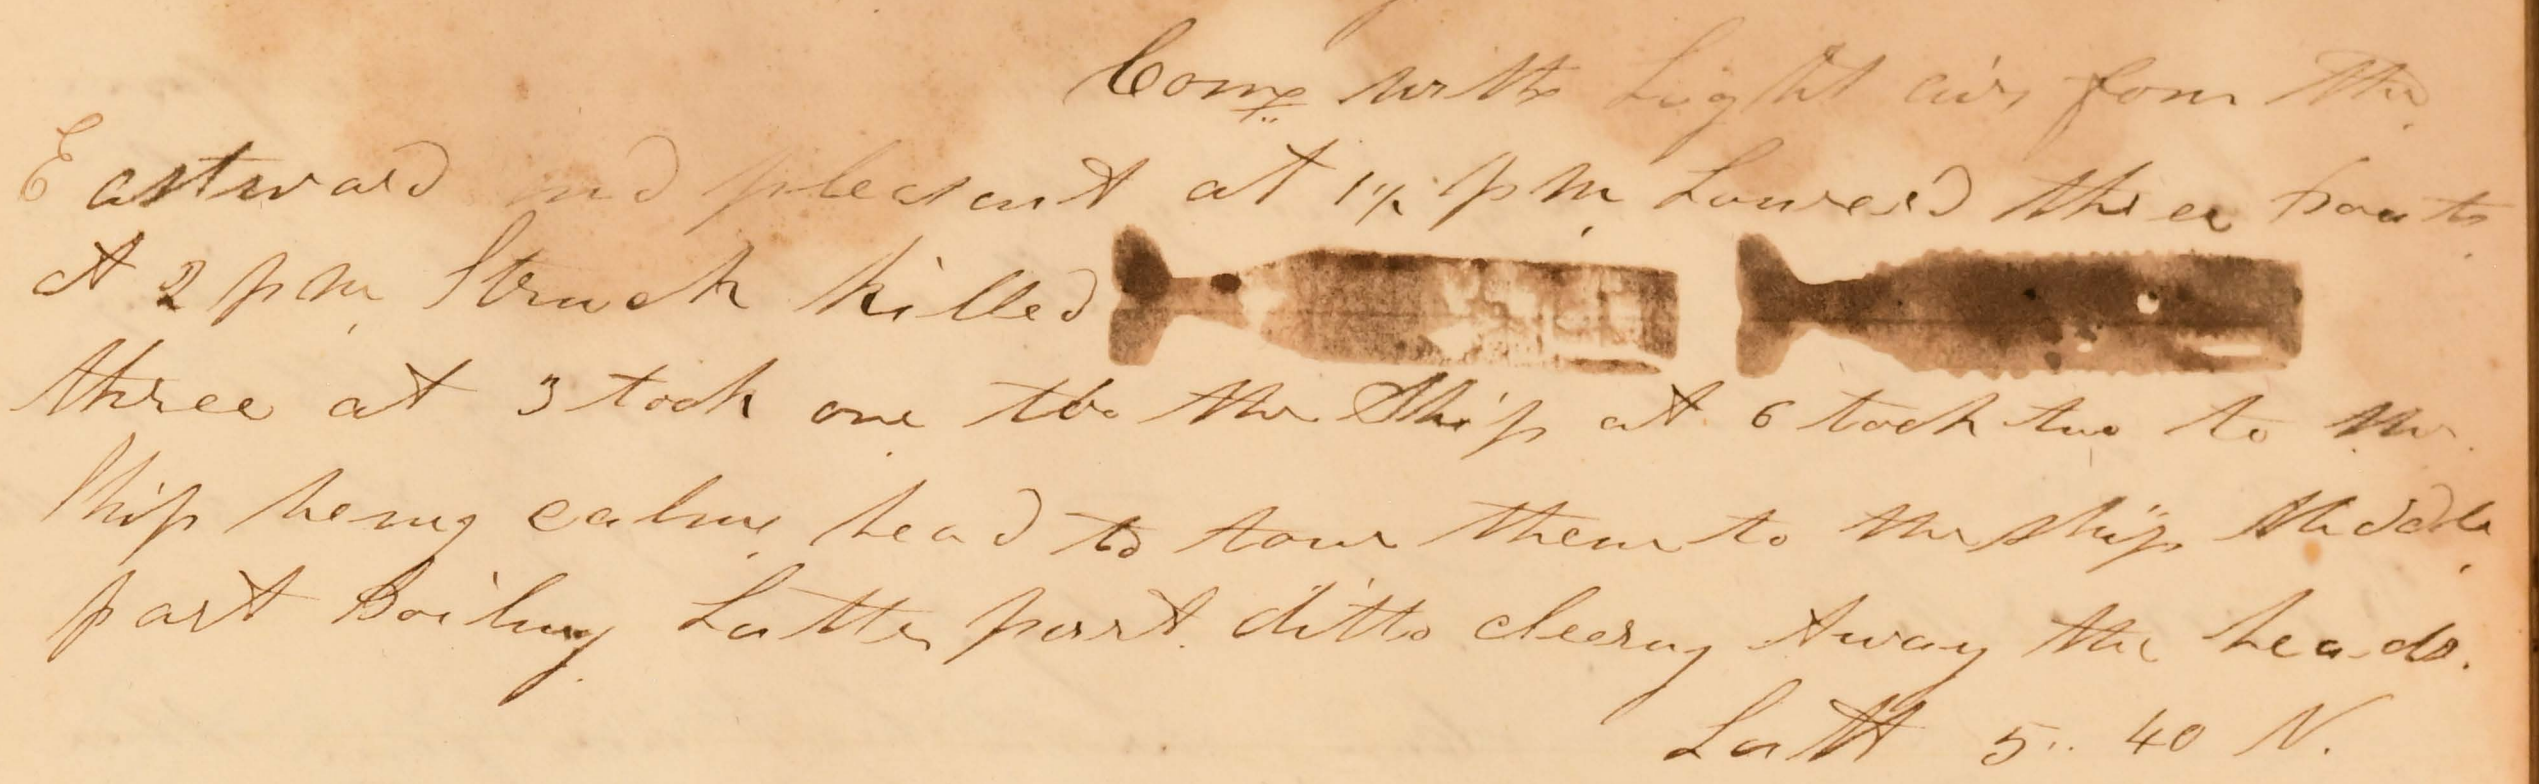 Comg with Light airs from the
Eastward and pleasant at 1½ pm Lowered three boats
At 2 pm Struck killed
three at 3 took one to the Ship at 6 took two to the
Ship being calm head to tow them to the ship Middle
part Boiling Latter part ditto cleerng Away the heads.
Latt 5.. 40 N.